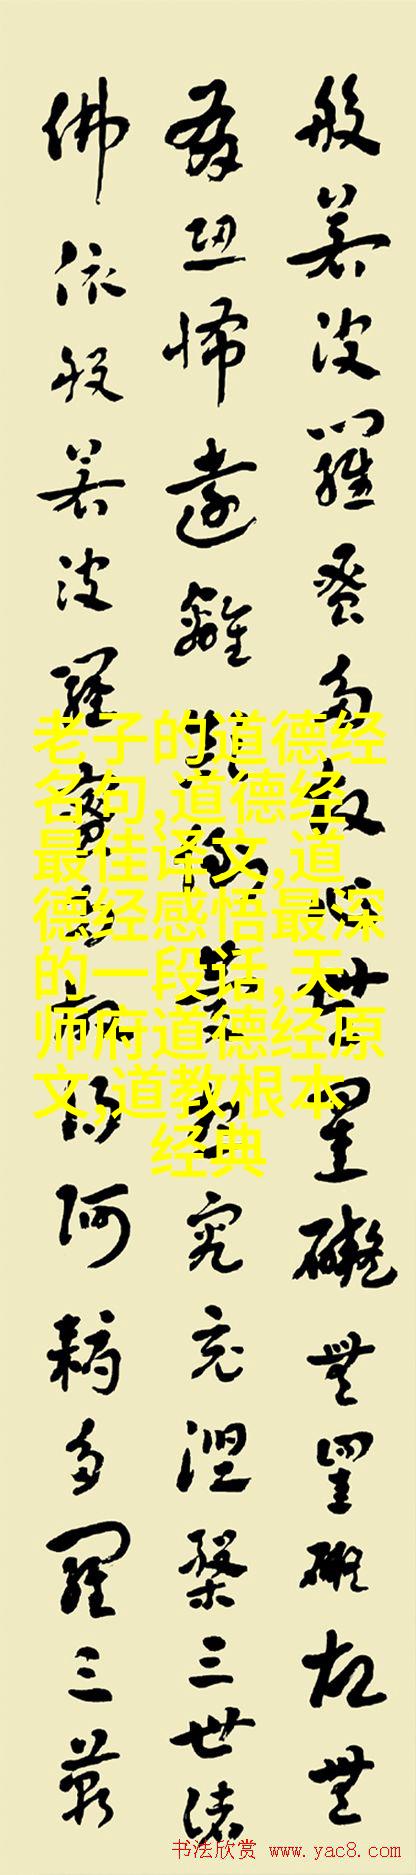 般若波羅蜜多故心無罣礙無罣礙故無
有恐怖遠離顛倒夢想究竟涅槃三世諸
佛依般若波羅蜜多故得阿耨多羅三藐
老子的道德经
名句,道德经
最佳译文,道
德经感悟最深
的一段话,天
师府道德经原
文,道教根本
经典
书法欣赏 www.yac8.com